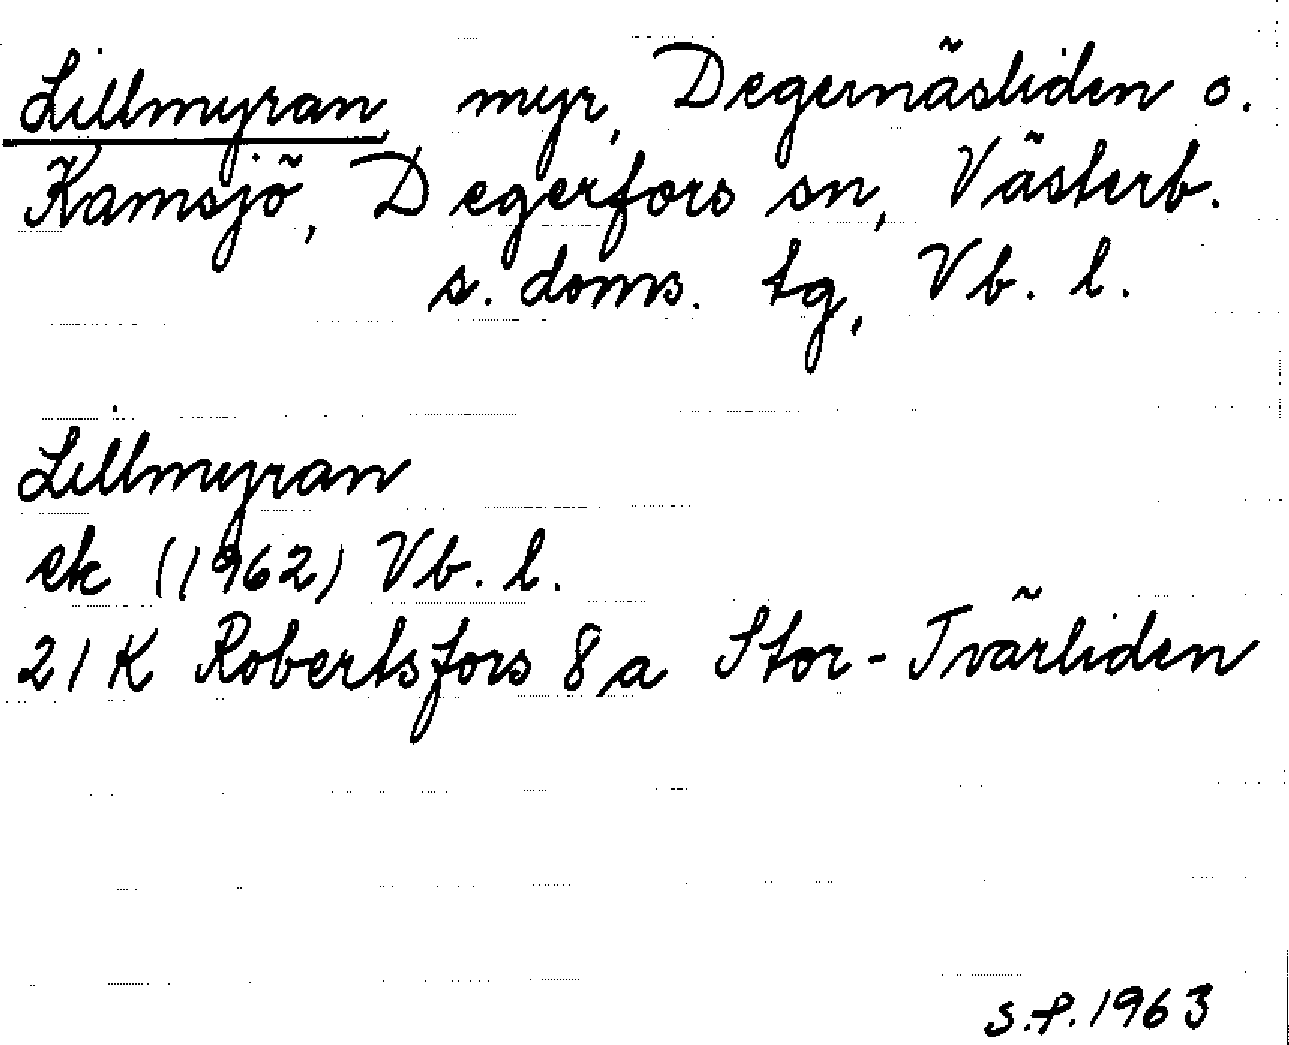 Lillmyran, myr, Degernäsliden o.
Kamsjö, Degerfors sn, Västerb.
s. doms. tg, Vb. l.
Lillmyran
ek (1962) Vb. l.
21 K Robertsfors 8 a Stor-Tvärliden
s.f. 1963